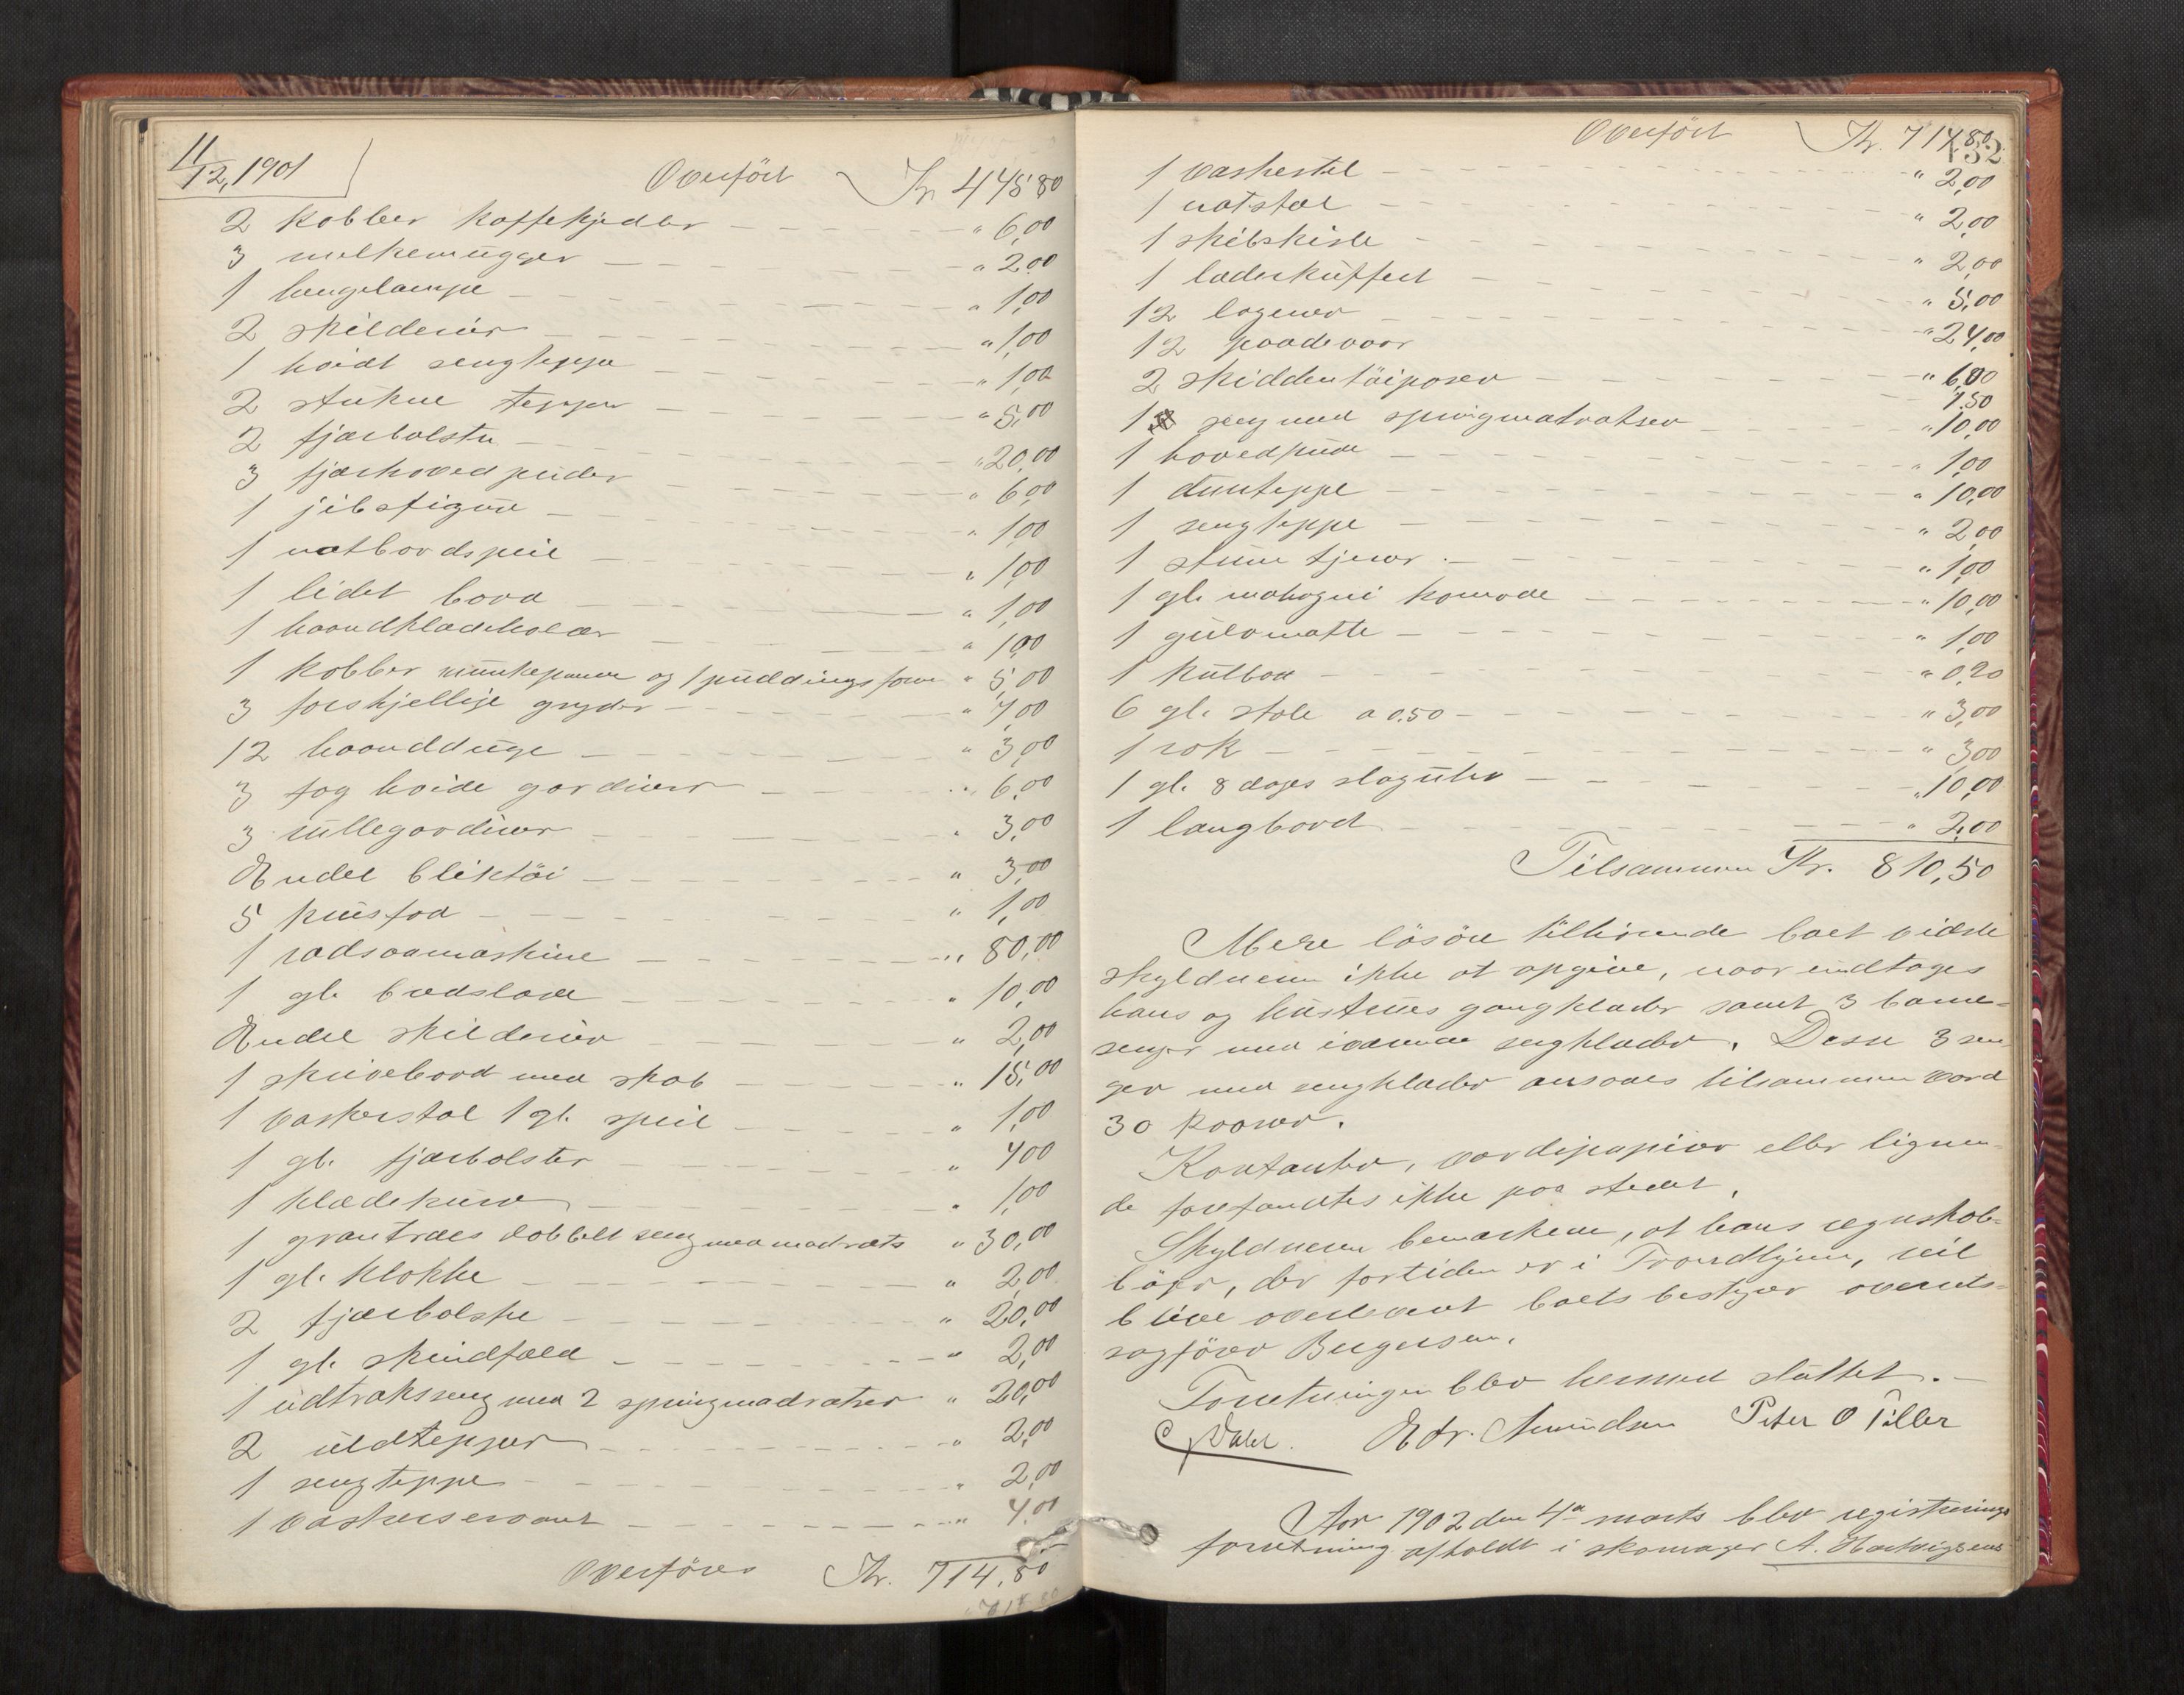 11/12, 1901
Overført Kr. 445,80
2 kobber kaffekjedler " 6,00
3 melkemugger " 2,00
1 hengelampe " 1,00
2 skilderier " 1,00
1 hvidt sengteppe " 1,00
2 strikne tepper " 5,00
2 fjærbolstre " 20,00
3 fjærhovedpuder " 6,00
1 jibsfigur " 1,00
1 natbordspeil " 1,00
1 lidet bord " 1,00
1 haandklædeholder " 1,00
1 kobber munkepande og 1 puddingsform " 5,00
3 forskjellige gryder " 4,00
12 haandduge " 3,00
3 fag hvide gardiner " 6,00
3 rullegardiner " 3,00
Endel bliktøi " 3,00
5 krusfad " 1,00
1 radsaamaskine " 80,00
1 gl. bredslæde " 10,00
Endel skilderier " 2,00
1 skrivebord med skab " 15,00
1 vaskerstol 1 gl. speil " 1,00
1 gl. fjærbolster " 4,00
1 klædekurv " 1,00
1 grantræes dobbelt seng med madrats " 30,00
1 gl. klokke " 2,00
2 fjærbolstre " 20,00
1 gl. skindfæld " 2,00
1 udtræksseng med 2 springmadratser " 20,00
2 uldtepper " 2,00
1 sengteppe " 2,00
1 vaskeservant " 4,00
Overføres Kr. 714,80
Overført Kr. 714,80
132
1 vaskestel " 2,00
1 natstol " 2,00
1 skibskiste " 2,00
1 læderkuffert " 5,00
12 lagener " 24,00
12 puudevaar " 6,00
2 skiddentøiposer 1.50
1 seng med springmatratser " 10,00
1 hovedpude " 1,00
1 dunteppe " 10,00
1 sengteppe " 2,00
1 stum tjener " 1,00
1 gl. mahogni komode " 10,00
1 gulvmatte " 1,00
1 kulbox " 0,20
6 gl. stole a 0.50 " 3,00
1 rok " 3,00
1 gl. 8 dages slaguhr " 10,00
1 langbord " 2,00
Tilsammen Kr. 810,50
Mere løsøre tilhørende boet vidste
skyldneren ikke at opgive, naar undtages
hans og hustrues gangklæder samt 3 barne-
senger med iværende sengklæder. Disse 3 sen-
ger med sengklæder ansaaes tilsammen værd
30 kroner.
Kontanter, værdipapirer eller lignen-
de forefandtes ikke paa stedet.
Skyldneren bemærkede, at hans regnskab-
bøger, der fortiden er i Trondhjem, vil
blive overleveret boets bestyrer overrets-
sagfører Bergersen.
Forretningen blev hermed sluttet. —
Edv. Amundsen Peter O Tiller
Aar 1902 den 4de marts blev registrerings
forretning afholdt i skomager A. Hartvigsens